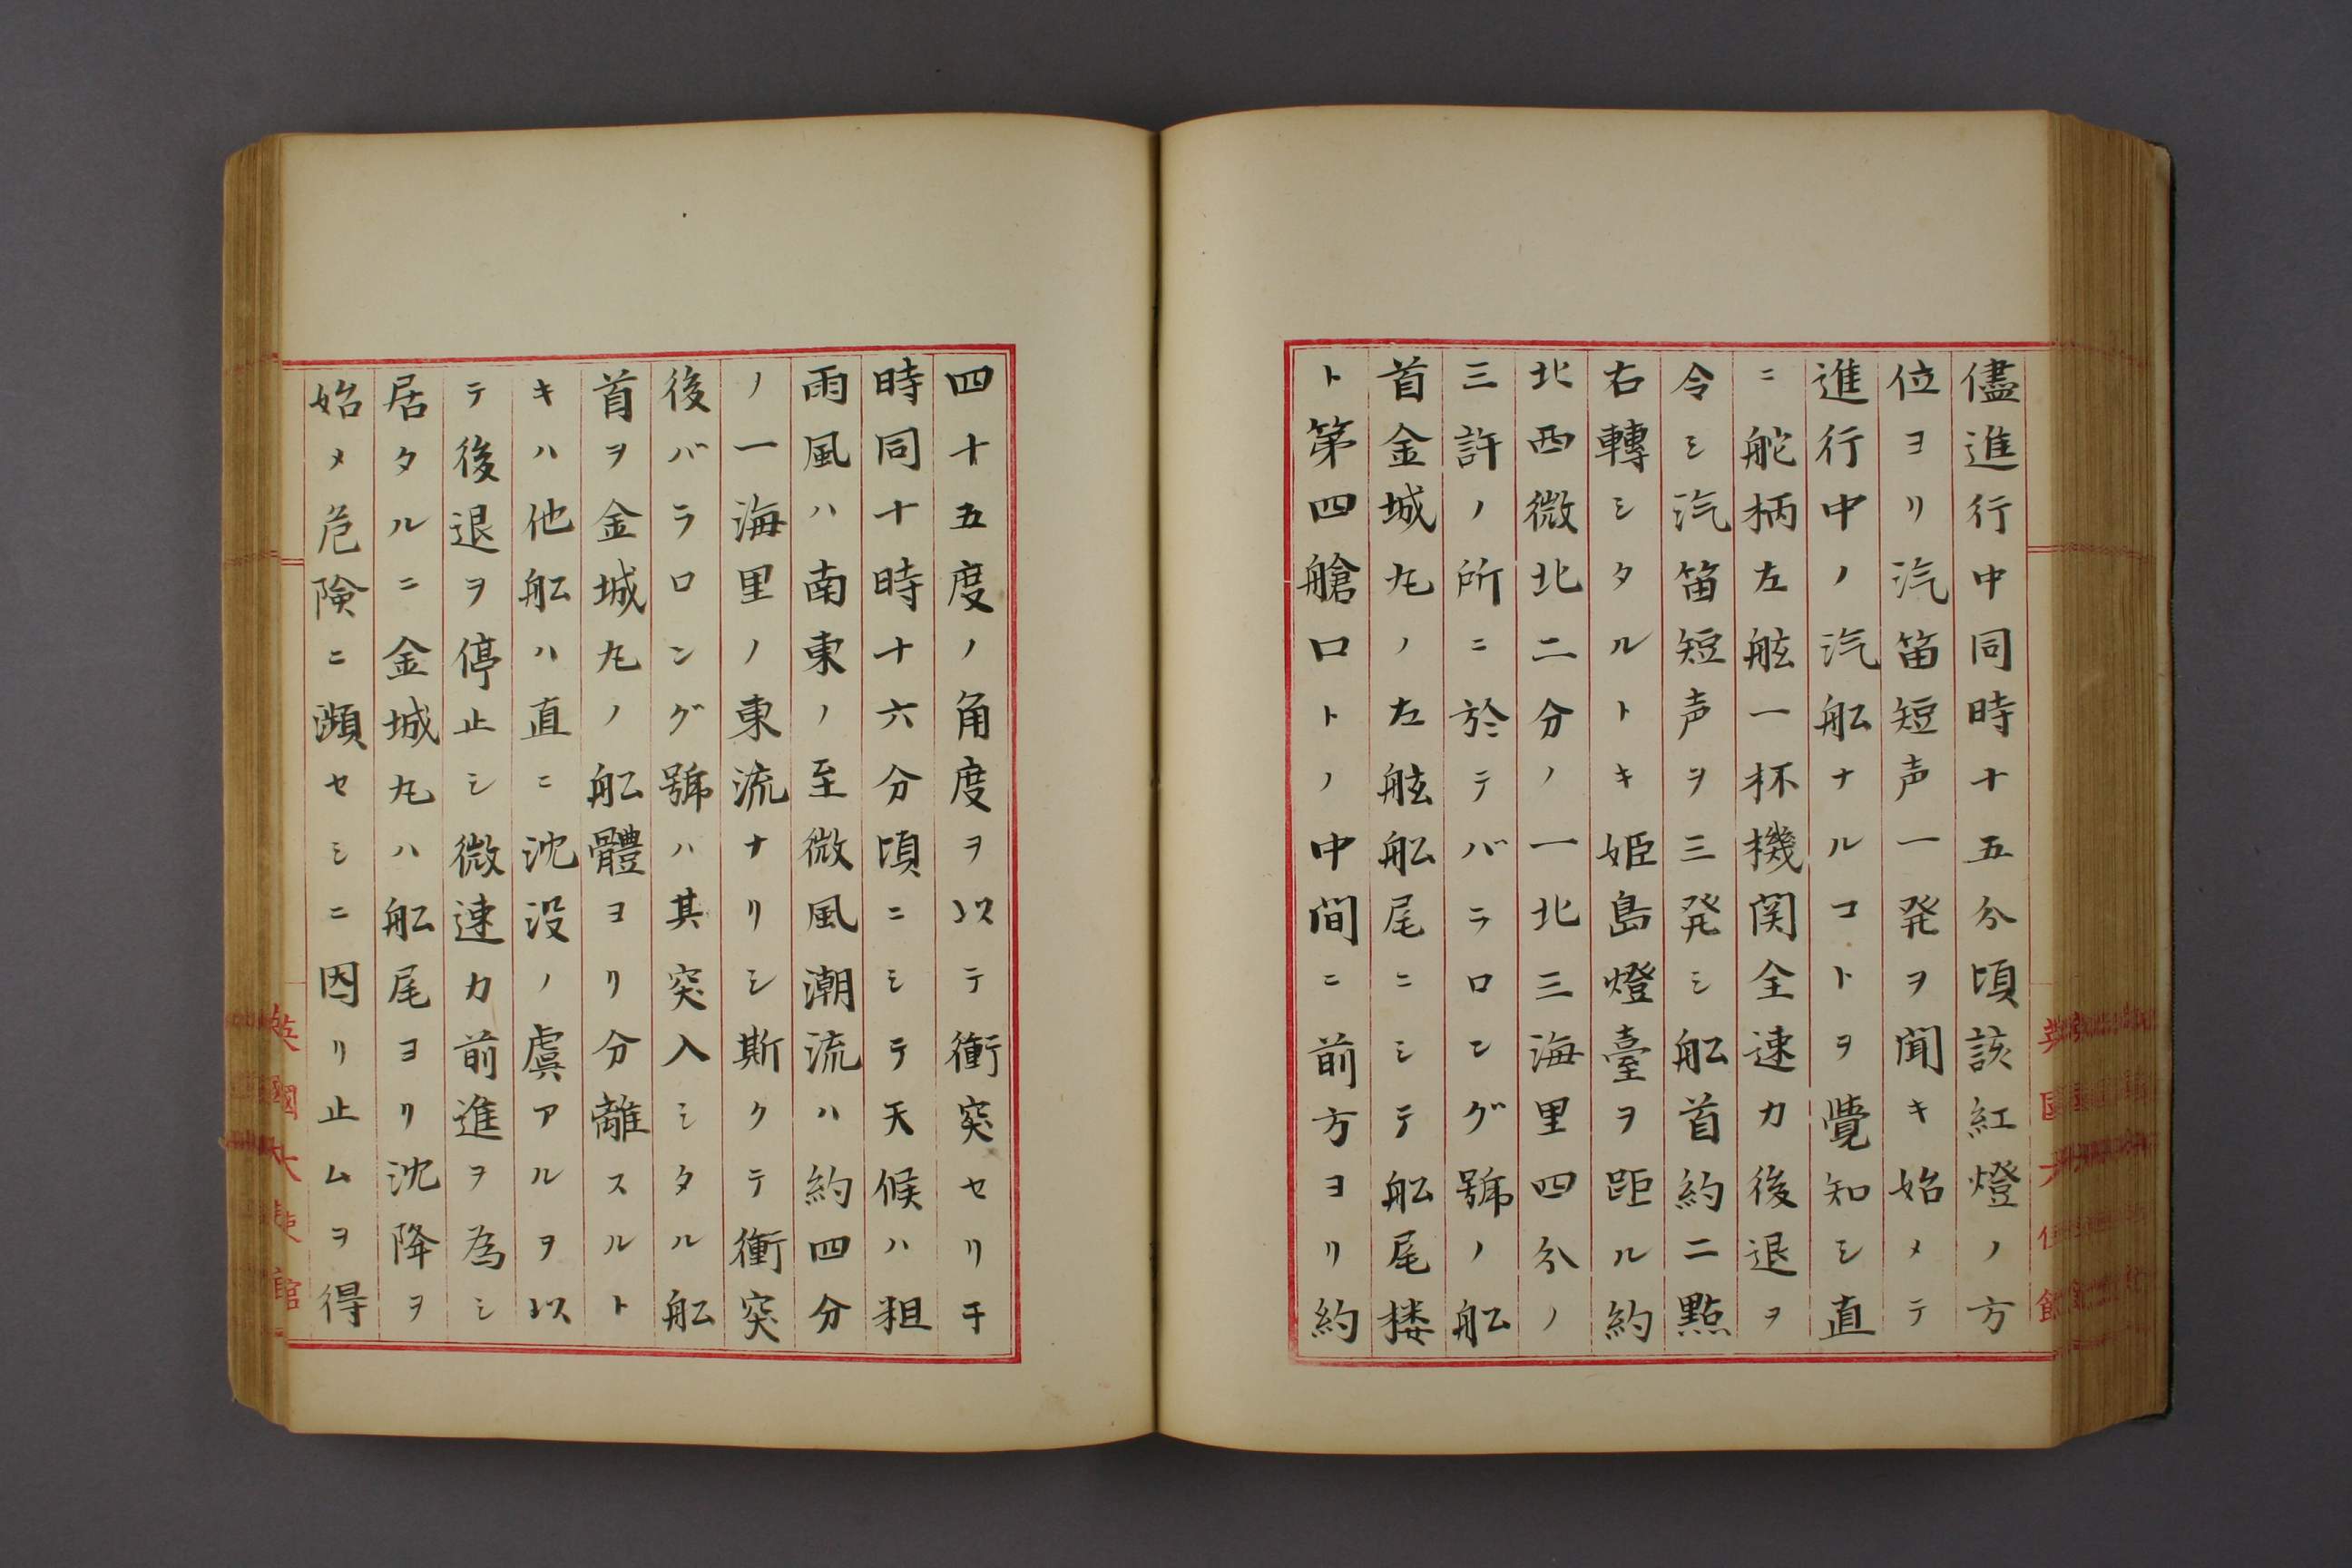 儘進行中同時十五分頃該紅燈ノ方
位ヨリ汽笛短声一発ヲ聞キ始メテ
進行中ノ汽舩ナルコトヲ覺知シ直
ニ舵柄左舷一杯機関全速力後退ヲ
令シ汽笛短声ヲ三発シ舩首約二點
右轉シタルトキ姫島燈臺ヲ距ル約
北西微北二分ノ一北三海里四分ノ
三許ノ所ニ於テバラロング號ノ舩
首金城丸ノ左舷舩尾ニシテ舩尾楼
ト第四艙口トノ中間ニ前方ヨリ約
四十五度ノ角度ヲ以テ衝突セリ于
時同十時十六分頃ニシテ天候ハ粗
雨風ハ南東ノ至微風潮流ハ約四分
ノ一海里ノ東流ナリシ斯クテ衝突
後バラロング號ハ其突入シタル舩
首ヲ金城丸ノ舩體ヨリ分離スルト
キハ他舩ハ直ニ沈没ノ虞アルヲ以
テ後退ヲ停止シ微速力前進ヲ為シ
居タルニ金城丸ハ舩尾ヨリ沈降ヲ
始メ危険ニ瀕セシニ因リ止ムヲ得
英國大使館